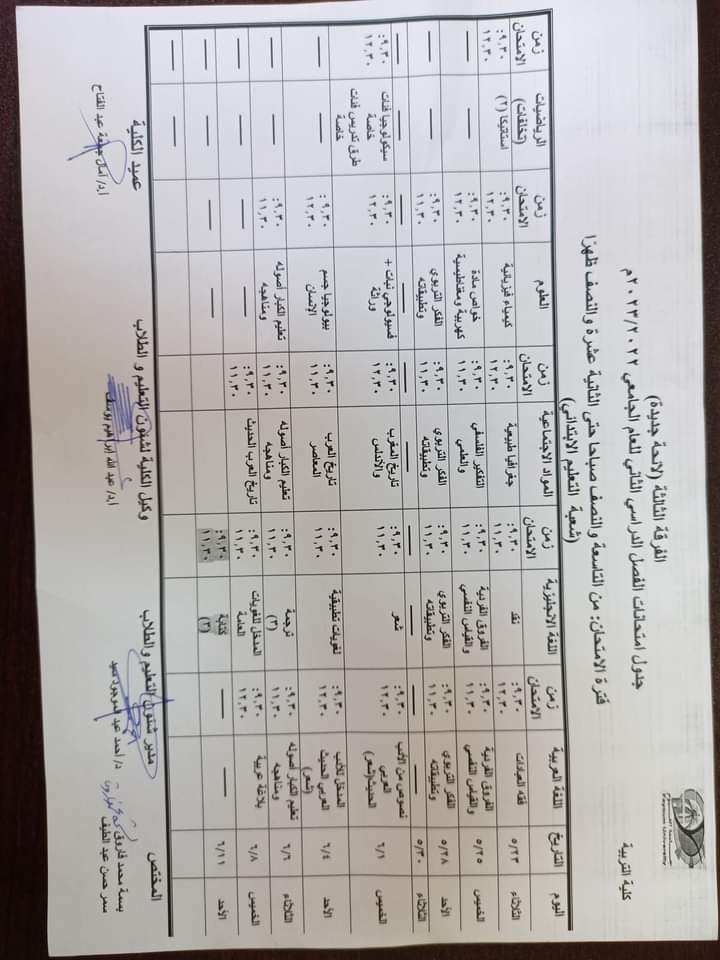 كلية التربية
الفرقة الثالثة (لائحة جديدة)
جدول امتحانات الفصل الدراسي الثاني للعام الجامعي ٢٠٢٣/٢٠٢٢م
فترة الامتحان: من التاسعة والنصف صباحا حتى الثانية عشرة والنصف ظهرًا
(شعبة التعليم الابتدائي)
اليوم التاريخ اللغة العربية زمن الامتحان اللغة الانجليزية زمن الامتحان المواد الاجتماعية زمن الامتحان العلوم زمن الامتحان الرياضيات (تخلفات) زمن الامتحان
الثلاثاء ٥/٢٣ فقه العبادات ٩,٣٠: ١٢,٣٠ نقد ٩,٣٠: ١١,٣٠ جغرافيا طبيعية ٩,٣٠: ١٢,٣٠ كيمياء فيزيائية ٩,٣٠: ١٢,٣٠ استاتيكا (٢) ٩,٣٠: ١٢,٣٠
الخميس ٥/٢٥ الفروق الفردية والقياس النفسي ٩,٣٠: ١١,٣٠ الفروق الفردية والقياس النفسي ٩,٣٠: ١١,٣٠ التفكير الفلسفي والعلمي ٩,٣٠: ١١,٣٠ خواص مادة كهربية ومغناطيسية ٩,٣٠: ١٢,٣٠ — —
الأحد ٥/٢٨ الفكر التربوي وتطبيقاته ٩,٣٠: ١١,٣٠ الفكر التربوي وتطبيقاته ٩,٣٠: ١١,٣٠ الفكر التربوي وتطبيقاته ٩,٣٠: ١١,٣٠ الفكر التربوي وتطبيقاته ٩,٣٠: ١١,٣٠ — —
الثلاثاء ٥/٣٠ — — — — — — — — — —
الخميس ٦/١ نصوص من الأدب العربي الحديث(شعر) ٩,٣٠: ١٢,٣٠ شعر ٩,٣٠: ١١,٣٠ تاريخ المغرب والاندلس ٩,٣٠: ١٢,٣٠ فسيولوجي نبات + وراثة ٩,٣٠: ١٢,٣٠ سيكولوجيا فئات خاصة طرق تدريس فئات خاصة ٩,٣٠: ١٢,٣٠
الأحد ٦/٤ المدخل للأدب العربي الحديث (شعر) ٩,٣٠: ١٢,٣٠ لغويات تطبيقية ٩,٣٠: ١١,٣٠ تاريخ العرب المعاصر ٩,٣٠: ١١,٣٠ بيولوجيا جسم الإنسان ٩,٣٠: ١٢,٣٠ — —
الثلاثاء ٦/٦ تعليم الكبار أصوله ومناهجه ٩,٣٠: ١١,٣٠ ترجمة (٣) ٩,٣٠: ١١,٣٠ تعليم الكبار أصوله ومناهجه ٩,٣٠: ١١,٣٠ تعليم الكبار أصوله ومناهجه ٩,٣٠: ١١,٣٠ — —
الخميس ٦/٨ بلاغة عربية ٩,٣٠: ١٢,٣٠ المدخل للغويات العامة ٩,٣٠: ١١,٣٠ تاريخ العرب الحديث ٩,٣٠: ١١,٣٠ — — — —
الأحد ٦/١١ — — كتابة (٣) ٩,٣٠: ١١,٣٠ — — — — — —
المختص مدير شئون التعليم والطلاب وكيل الكلية لشئون التعليم و الطلاب عميد الكلية
بسمة محمد فاروق د/ أحمد عبد الموجود سيد ا.د/ عبد الله إبراهيم يوسف ا.د/ آمال جمعة عبد الفتاح
سمر حسن عبد اللطيف